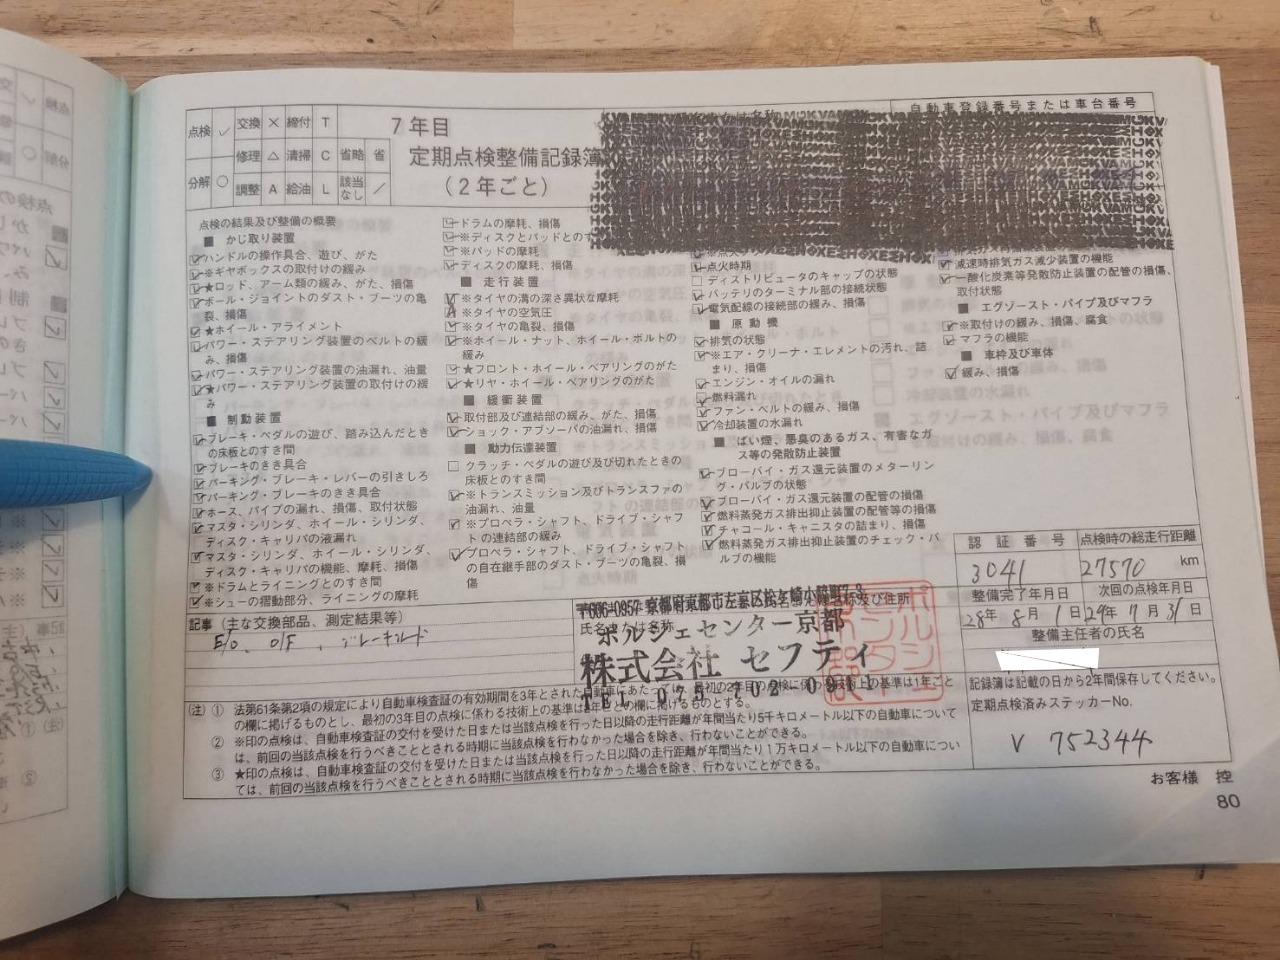 点検 ✓ 交換 × 締付 T
修理 △ 清掃 C 省略 省
分解 ○ 調整 A 給油 L 該当なし ／
7年目
定期点検整備記録簿
（2年ごと）
自動車登録番号または車台番号
点検の結果及び整備の概要
■ かじ取り装置
ハンドルの操作具合、遊び、がた
※ギヤボックスの取付けの緩み
★ロッド、アーム類の緩み、がた、損傷
ボール・ジョイントのダスト・ブーツの亀
裂、損傷
★ホイール・アライメント
パワー・ステアリング装置のベルトの緩
み、損傷
パワー・ステアリング装置の油漏れ、油量
★パワー・ステアリング装置の取付けの緩
み
■ 制動装置
ブレーキ・ペダルの遊び、踏み込んだとき
の床板とのすき間
ブレーキのきき具合
パーキング・ブレーキ・レバーの引きしろ
パーキング・ブレーキのきき具合
ホース、パイプの漏れ、損傷、取付状態
マスタ・シリンダ、ホイール・シリンダ、
ディスク・キャリパの液漏れ
マスタ・シリンダ、ホイール・シリンダ、
ディスク・キャリパの機能、摩耗、損傷
※ドラムとライニングとのすき間
※シューの摺動部分、ライニングの摩耗
ドラムの摩耗、損傷
※ディスクとパッドとのす
※パッドの摩耗
ディスクの摩耗、損傷
■ 走行装置
※タイヤの溝の深さ異状な摩耗
※タイヤの空気圧
※タイヤの亀裂、損傷
※ホイール・ナット、ホイール・ボルトの
緩み
★フロント・ホイール・ベアリングのがた
★リヤ・ホイール・ベアリングのがた
■ 緩衝装置
取付部及び連結部の緩み、がた、損傷、
ショック・アブソーバの油漏れ、損傷
■ 動力伝達装置
クラッチ・ペダルの遊び及び切れたときの
床板とのすき間
※トランスミッション及びトランスファの
油漏れ、油量
※プロペラ・シャフト、ドライブ・シャフ
トの連結部の緩み
プロペラ・シャフト、ドライブ・シャフト
の自在継手部のダスト・ブーツの亀裂、損
傷
点火時期
ディストリビュータのキャップの状態
バッテリのターミナル部の接続状態
電気配線の接続部の緩み、損傷
■ 原動機
排気の状態
※エア・クリーナ・エレメントの汚れ、詰
まり、損傷
エンジン・オイルの漏れ
燃料漏れ
ファン・ベルトの緩み、損傷
冷却装置の水漏れ
■ ばい煙、悪臭のあるガス、有害なガ
ス等の発散防止装置
ブローバイ・ガス還元装置のメターリン
グ・バルブの状態
ブローバイ・ガス還元装置の配管の損傷
燃料蒸発ガス排出抑止装置の配管等の損傷
チャコール・キャニスタの詰まり、損傷
燃料蒸発ガス排出抑止装置のチェック・バ
ルブの機能
減速時排気ガス減少装置の機能
一酸化炭素等発散防止装置の配管の損傷、
取付状態
■ エグゾースト・パイプ及びマフラ
※取付けの緩み、損傷、腐食
マフラの機能
■ 車枠及び車体
緩み、損傷
記事（主な交換部品、測定結果等）
E/O、O/F、ブレーキフルード
〒606-0957 京都府京都市左京区松ヶ崎小脇町7-8
氏名または名称
及び住所
ポルシェセンター京都
株式会社 セフティ
TEL 075-702-0911
認証番号 点検時の総走行距離
3041 27570 km
整備完了年月日 次回の点検年月日
28年 8月 1日 29年 7月 31日
整備主任者の氏名
記録簿は記載の日から2年間保存してください。
定期点検済みステッカーNo.
V 752344
（注）① 法第61条第2項の規定により自動車検査証の有効期間を3年とされた自動車にあたっては、最初の2年目の点検に係わる技術上の基準は1年ごと
の欄に掲げるものとし、最初の3年目の点検に係わる技術上の基準は2年ごとの欄に掲げるものとする。
② ※印の点検は、自動車検査証の交付を受けた日または当該点検を行った日以降の走行距離が年間当り5千キロメートル以下の自動車について
は、前回の当該点検を行うべきこととされる時期に当該点検を行わなかった場合を除き、行わないことができる。
③ ★印の点検は、自動車検査証の交付を受けた日または当該点検を行った日以降の走行距離が年間当り1万キロメートル以下の自動車につい
ては、前回の当該点検を行うべきこととされる時期に当該点検を行わなかった場合を除き、行わないことができる。
お客様 控
80